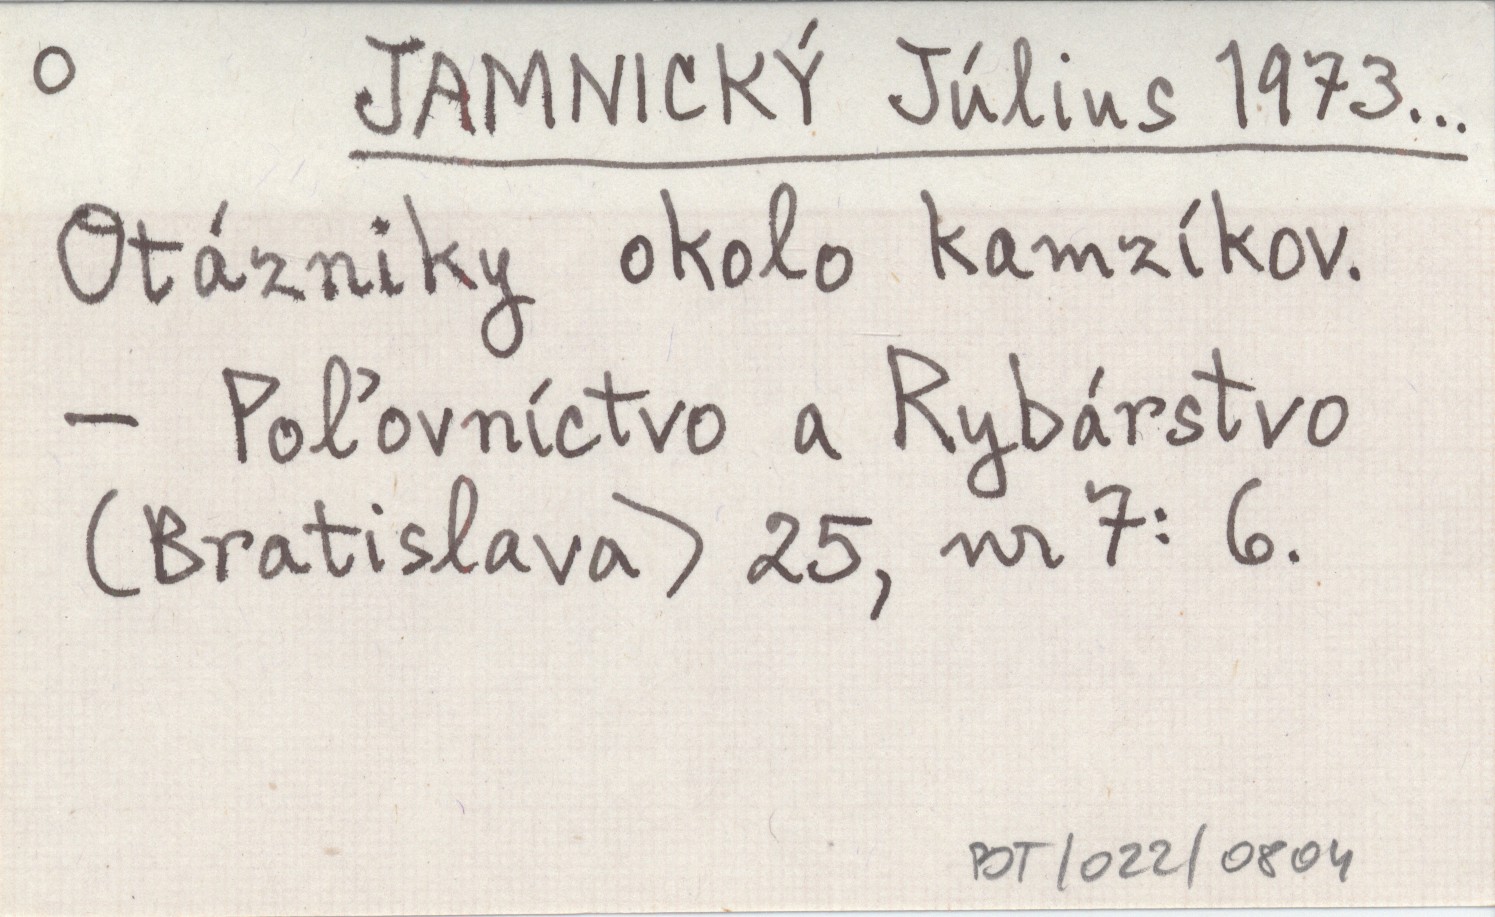 O JAMNICKÝ Július 1973...
Otázniky okolo kamzíkov.
— Poľovníctvo a Rybárstvo
(Bratislava) 25, nr 7: 6.
BDT/022/0804